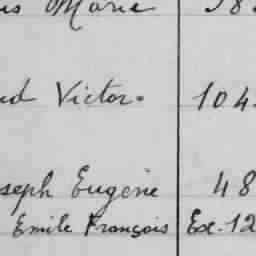 Marie
Victor. 104
seph Eugène 48
Emile François Ex. 12